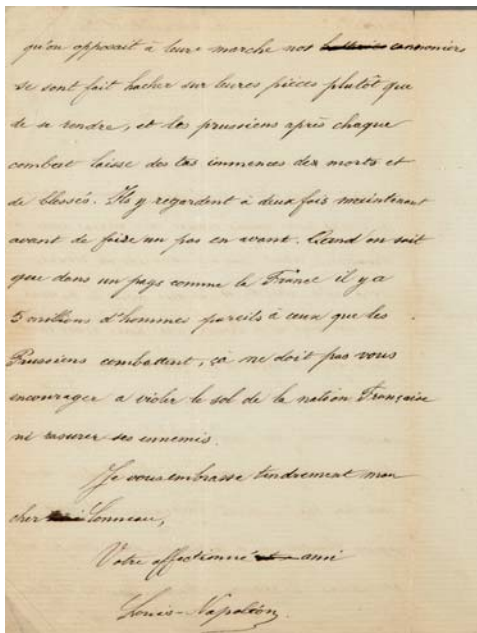 qu'on opposait à leure marche nos batteries canoniers
se sont fait hacher sur leures pièces plutôt que
de se rendre, et les prussiens après chaque
combat laisse des tas immences des morts et
de blessés. Ils y regardent à deux fois maintenant
avant de faire un pas en avant. Cand on sait
que dans un pays comme la France il y a
5 millions d'hommes pareils à ceux que les
Prussiens combattent, ça ne doit pas vous
encourager a violer le sol de la nation Française
ni rasurer ses ennemis.
Je vous embrasse tendrement mon
cher Conneau,
Votre affectionné ami
Louis-Napoléon